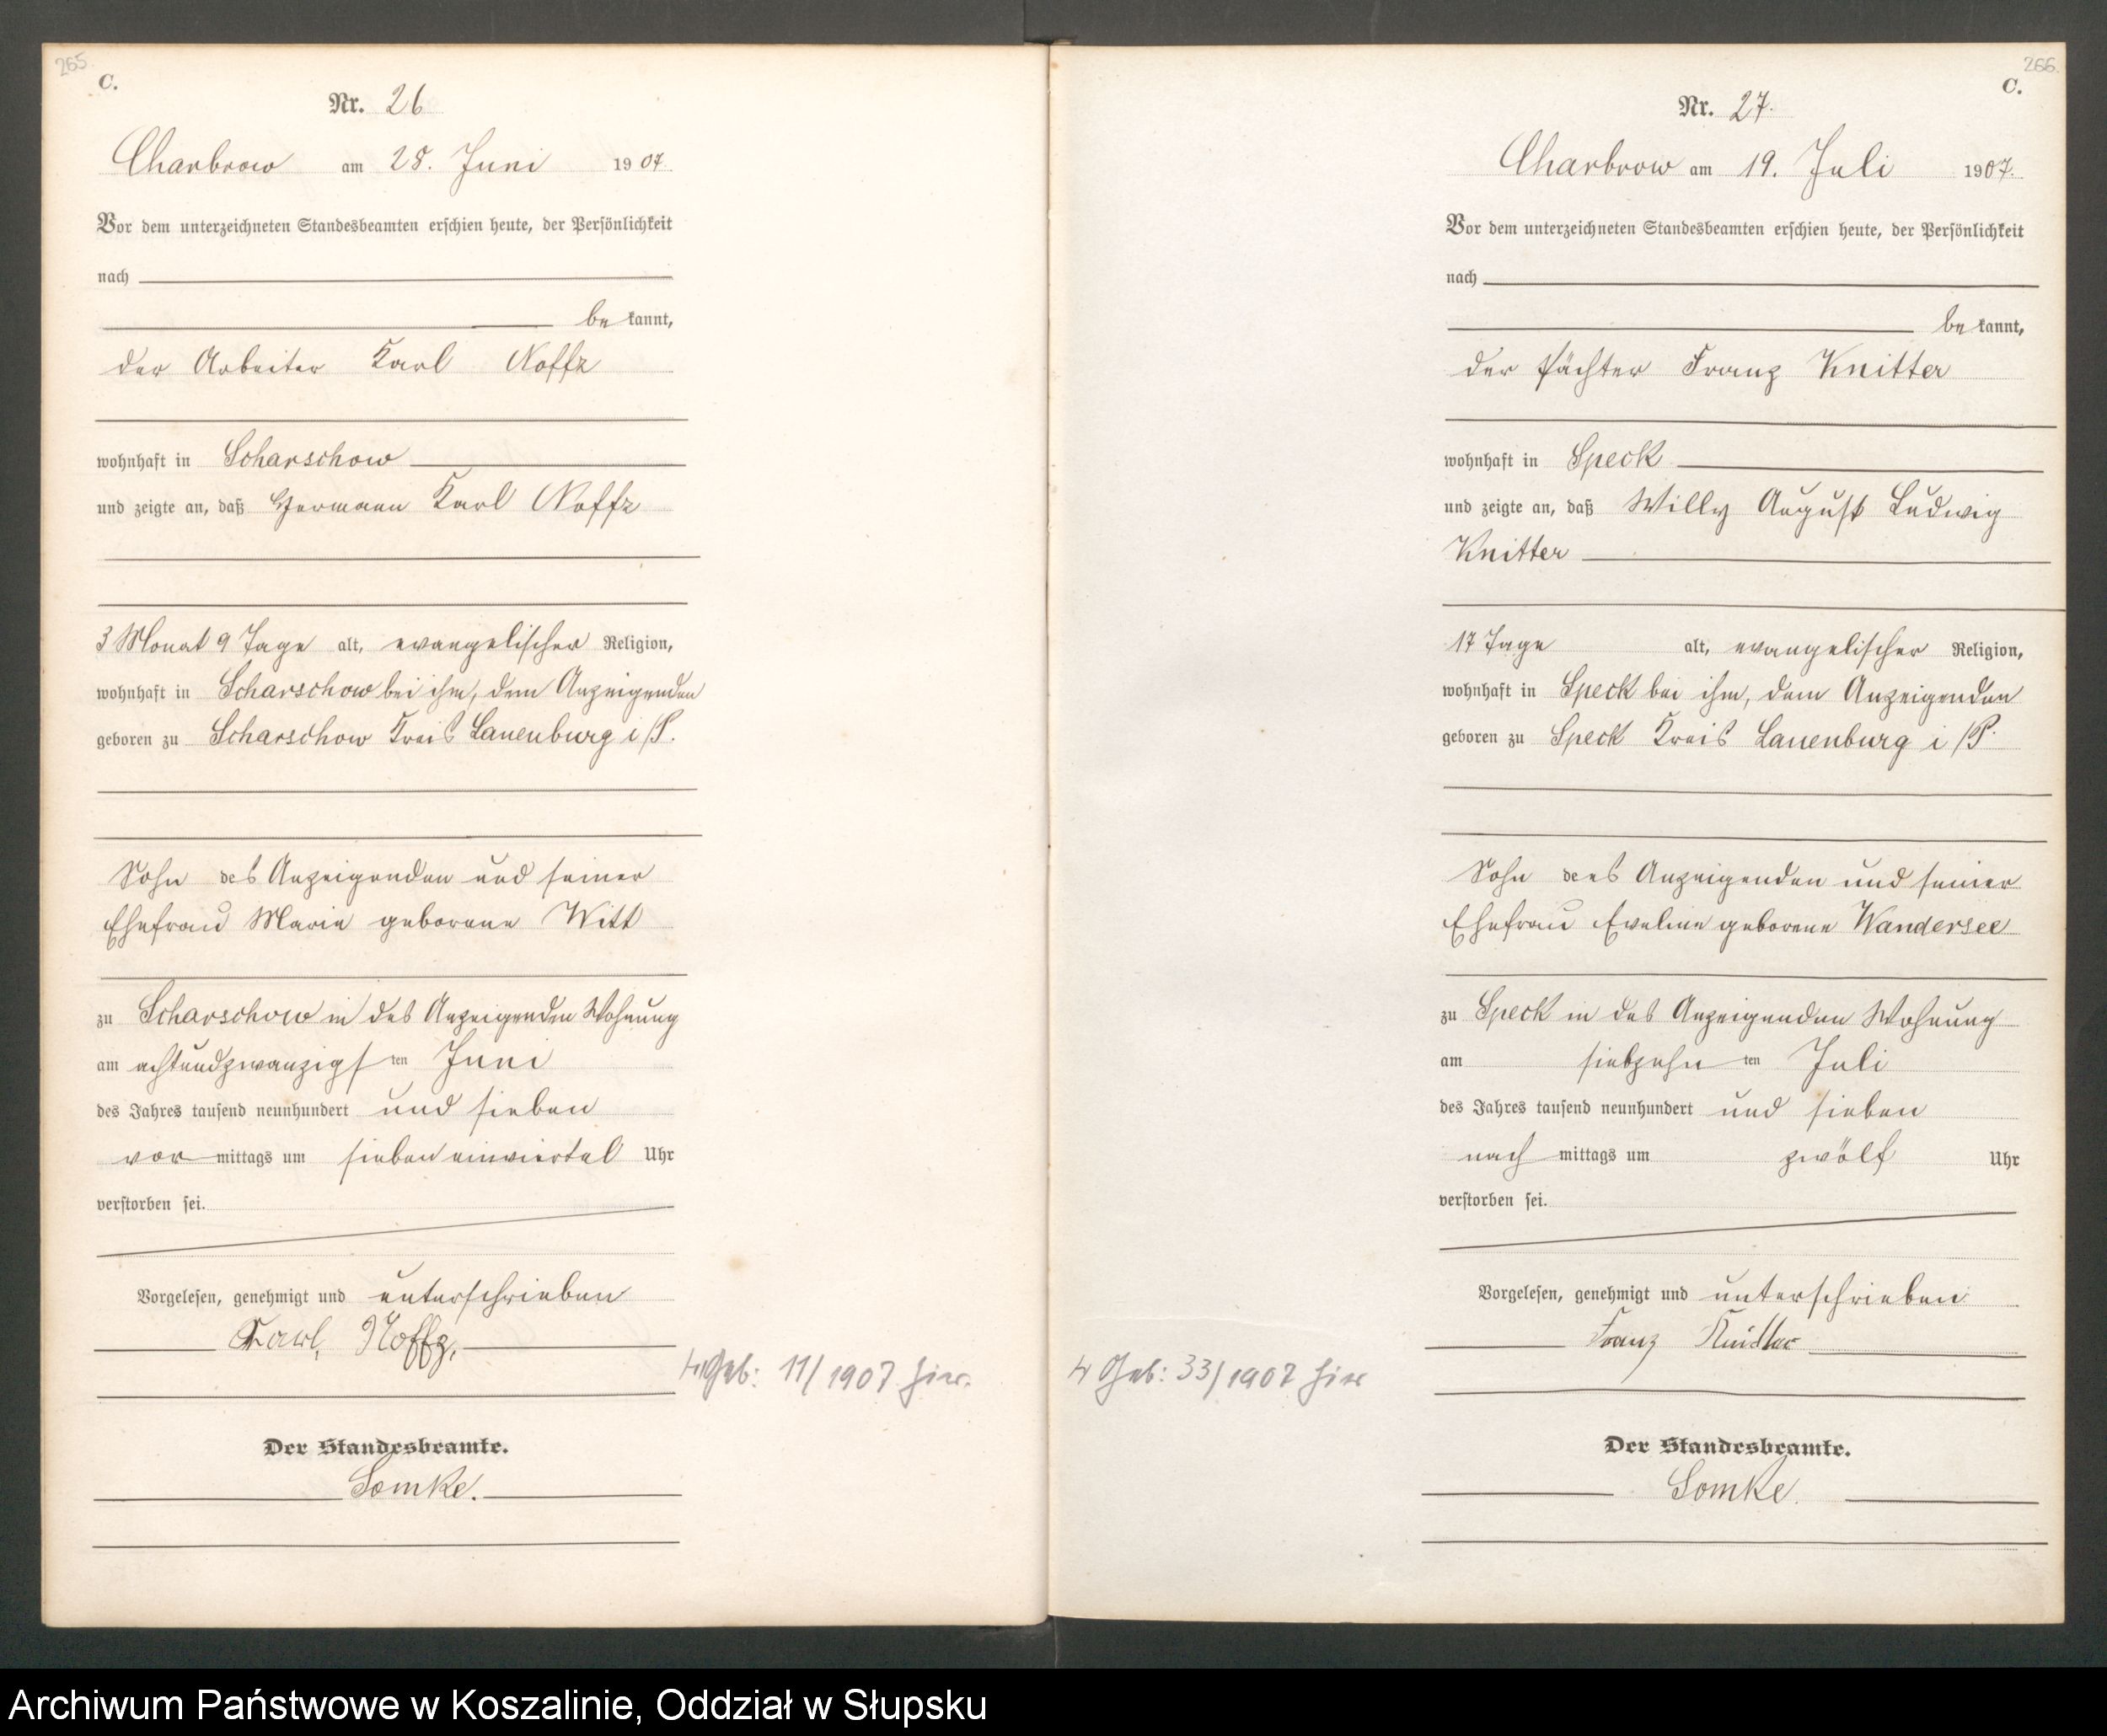 265.
C.
Nr. 26
Charbrow am 28. Juni 1907.
Vor dem unterzeichneten Standesbeamten erschien heute, der Persönlichkeit
nach
be kannt,
der Arbeiter Karl Noffz
wohnhaft in Scharschow
und zeigte an, daß Hermann Karl Noffz
3 Monat 9 Tage alt, evangelischer Religion,
wohnhaft in Scharschow bei ihm, dem Anzeigenden
geboren zu Scharschow Kreis Lauenburg i/P.
Sohn des Anzeigenden und seiner
Ehefrau Marie geborene Witt
zu Scharschow in des Anzeigenden Wohnung
am achtundzwanzigs ten Juni
des Jahres tausend neunhundert und sieben
vor mittags um sieben einviertel Uhr
verstorben sei.
Vorgelesen, genehmigt und unterschrieben
Karl, Noffz,
Geb: 11/1907 hier.
Der Standesbeamte.
Somke.
266.
C.
Nr. 27.
Charbrow am 19. Juli 1907.
Vor dem unterzeichneten Standesbeamten erschien heute, der Persönlichkeit
nach
be kannt,
der Pächter Franz Knitter
wohnhaft in Speck
und zeigte an, daß Willy August Ludwig
Knitter
17 Tage alt, evangelischer Religion,
wohnhaft in Speck bei ihm, dem Anzeigenden
geboren zu Speck Kreis Lauenburg i/P.
Sohn des Anzeigenden und seiner
Ehefrau Eveline geborene Wandersee
zu Speck in des Anzeigenden Wohnung
am siebzehn ten Juli
des Jahres tausend neunhundert und sieben
nach mittags um zwölf Uhr
verstorben sei.
Vorgelesen, genehmigt und unterschrieben
Franz Knitter
Geb: 33/1907 hier
Der Standesbeamte.
Somke.
Archiwum Państwowe w Koszalinie, Oddział w Słupsku